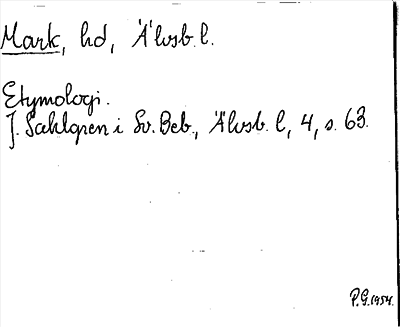 Mark, hd, Älvsb. l.
Etymologi.
J. Sahlgren i Sv. Beb., Älvsb. l, 4, s. 63.
P.G. 1954.